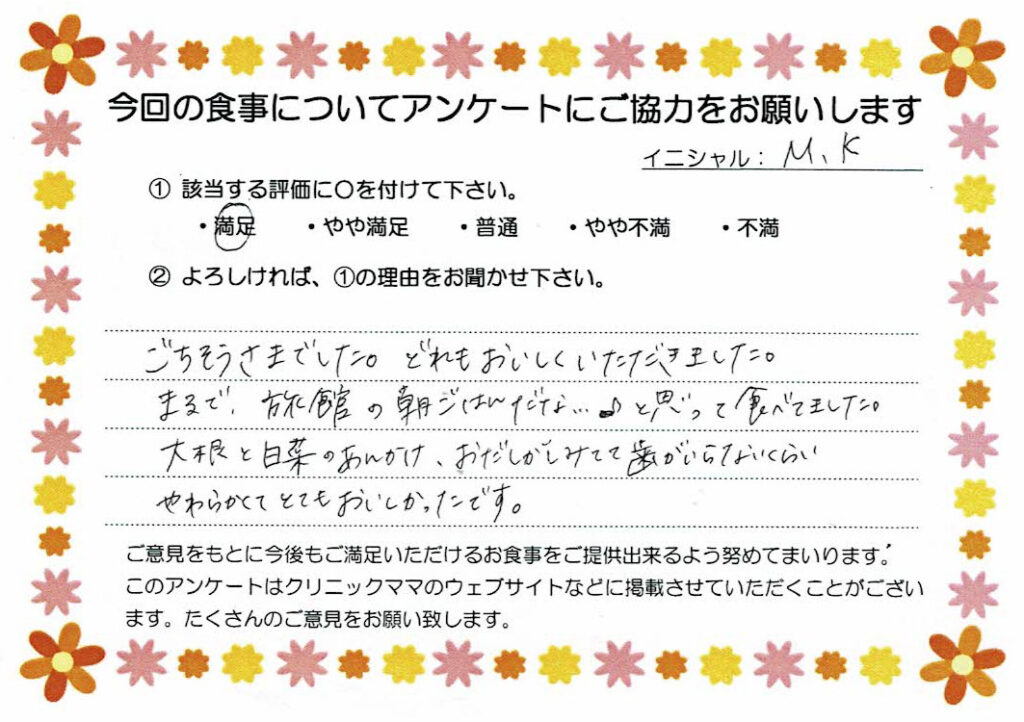 今回の食事についてアンケートにご協力をお願いします
イニシャル： M、K
① 該当する評価に〇を付けて下さい。
・満足 ・やや満足 ・普通 ・やや不満 ・不満
② よろしければ、①の理由をお聞かせ下さい。
ごちそうさまでした。どれもおいしくいただきました。
まるで、旅館の朝ごはんだな…♪と思って食べてました。
大根と白菜のあんかけ、おだしがしみてて歯がいらないくらい
やわらかくてとてもおいしかったです。
ご意見をもとに今後もご満足いただけるお食事をご提供出来るよう努めてまいります。
このアンケートはクリニックママのウェブサイトなどに掲載させていただくことがござい
ます。たくさんのご意見をお願い致します。